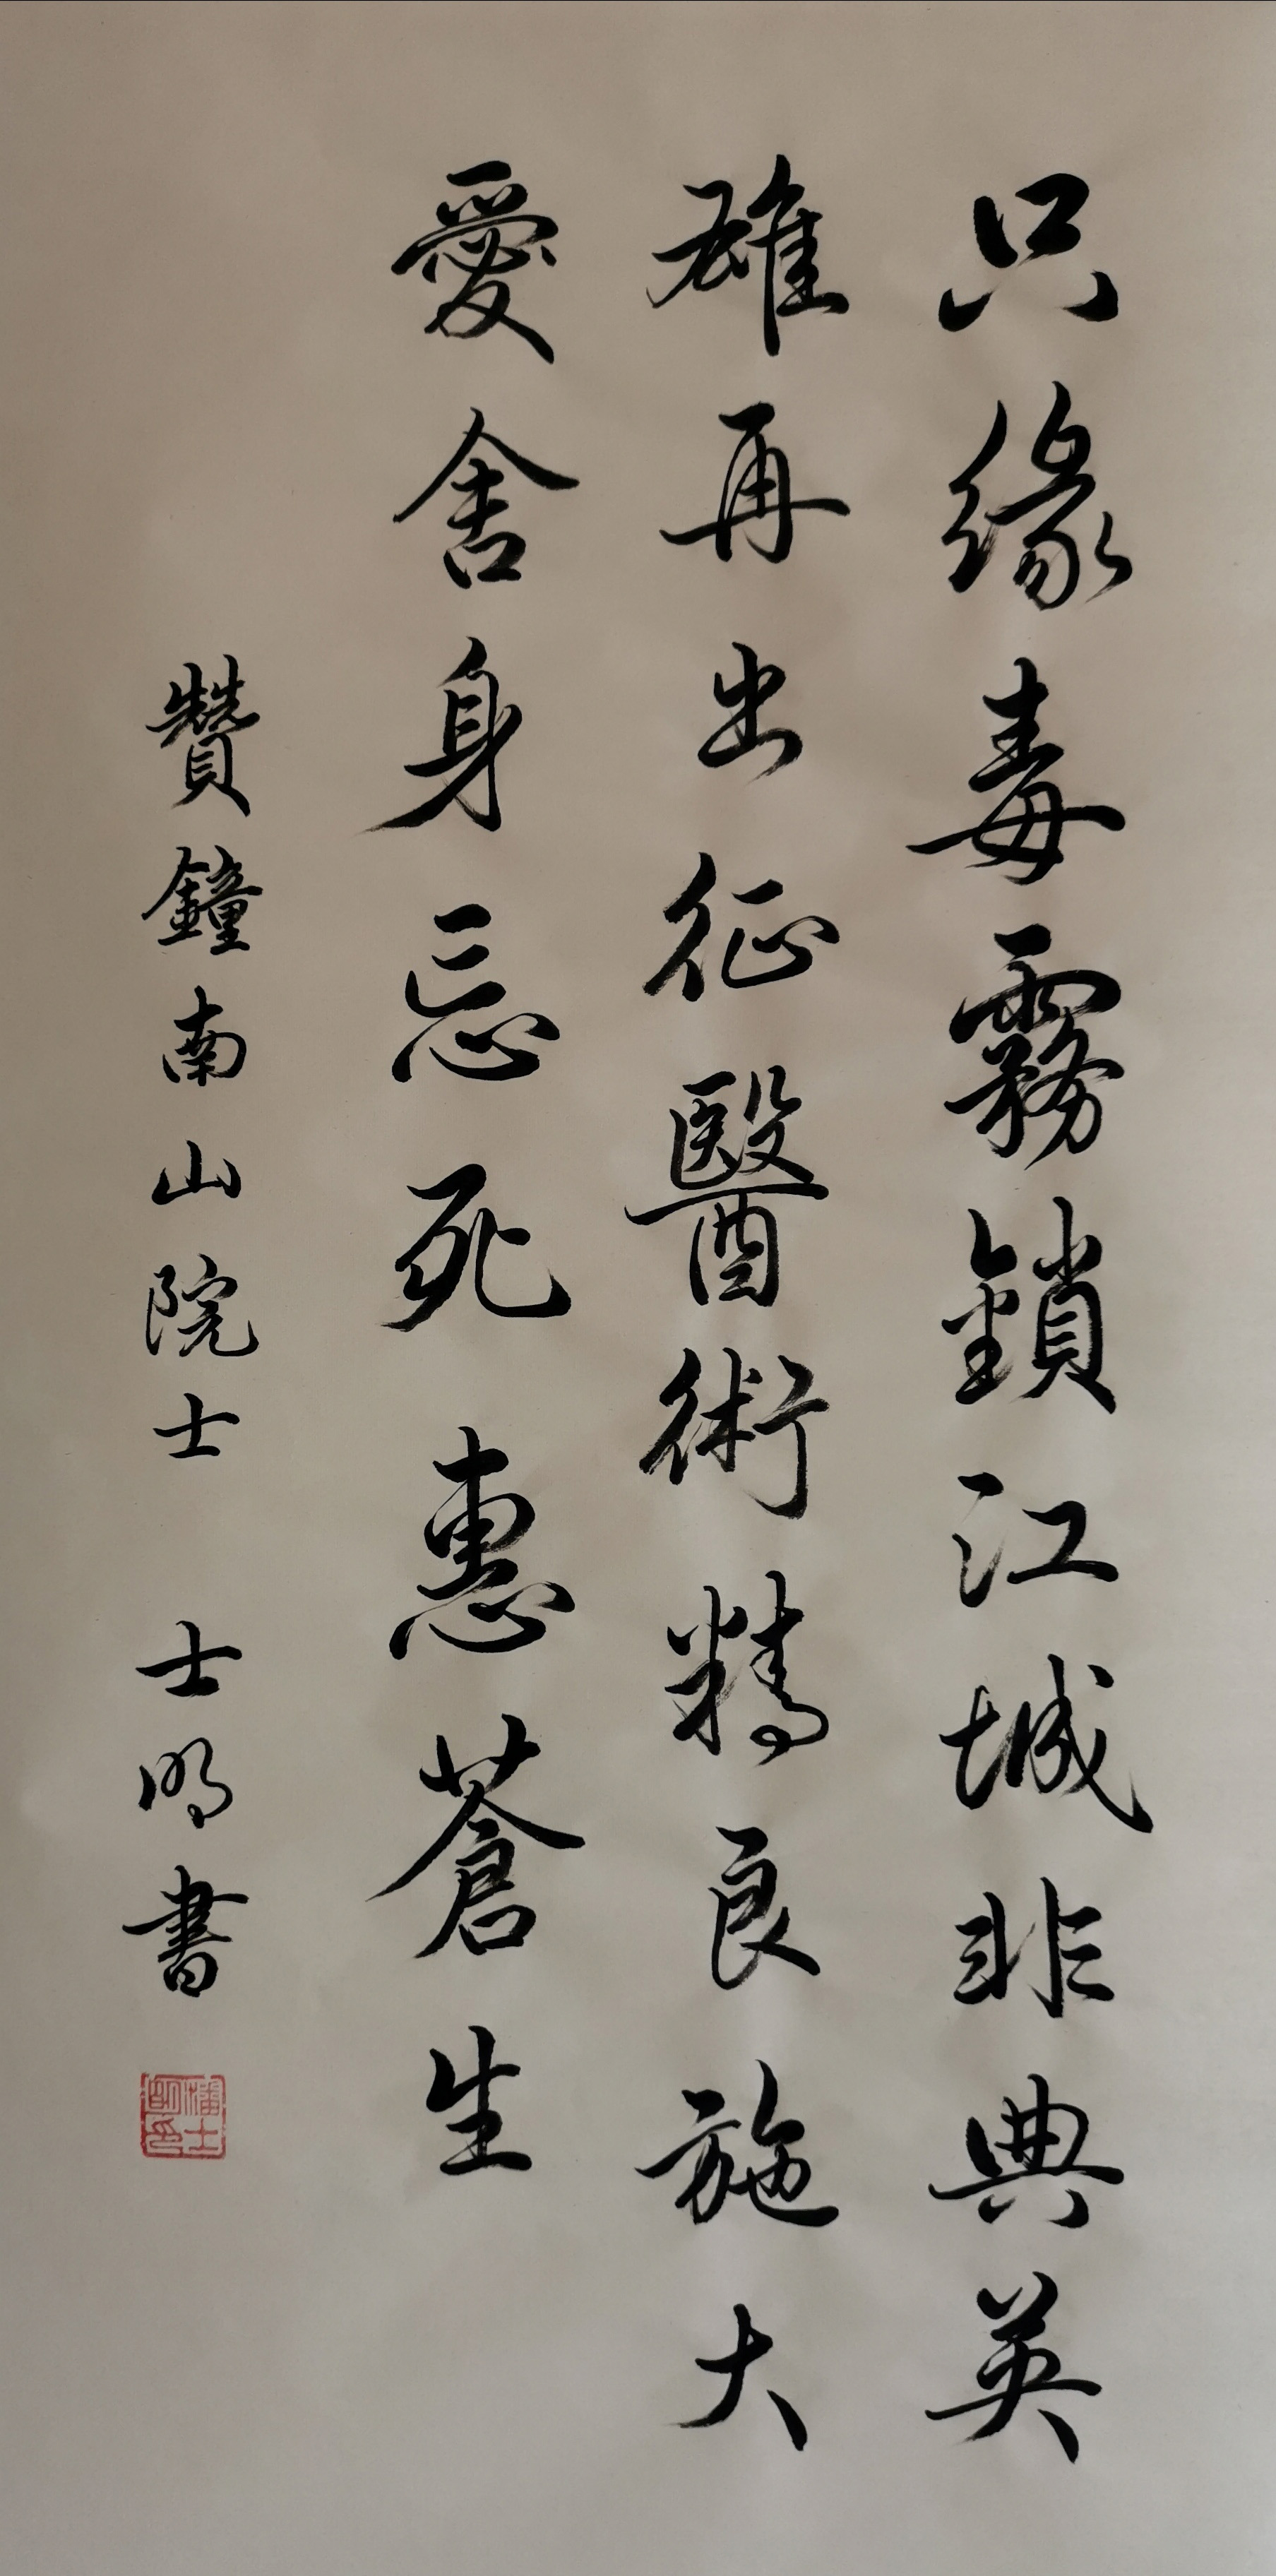 只缘毒霧鎖江城非典英
雄再出征醫術精良施大
愛舍身忘死惠蒼生
贊鐘南山院士 士明書
潘士明印